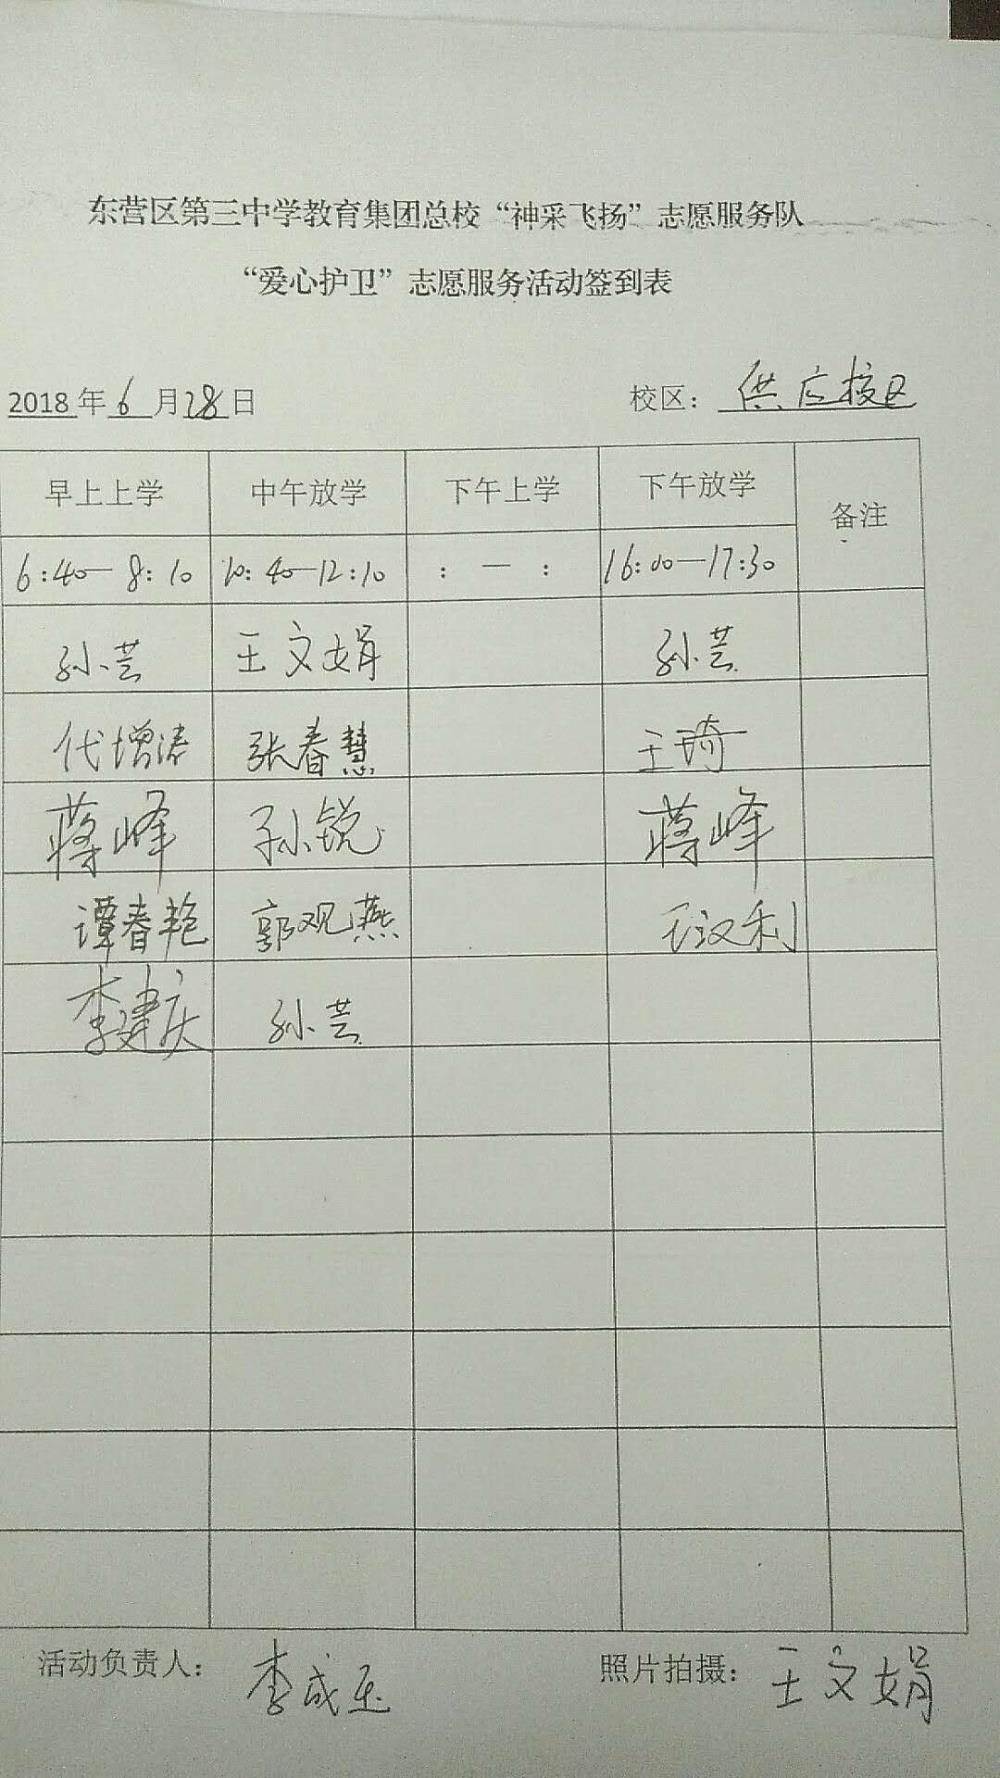 东营区第三中学教育集团总校“神采飞扬”志愿服务队
“爱心护卫”志愿服务活动签到表
2018年6月28日 校区：供应校区
早上上学 中午放学 下午上学 下午放学 备注
6:40—8:10 10:40—12:10 : — : 16:00—17:30
孙芸 王文娟 孙芸
代增涛 张春慧 王琦
蒋峰 孙锐 蒋峰
谭春艳 郭观燕 王汉利
李建庆 孙芸
活动负责人：李成玉 照片拍摄：王文娟